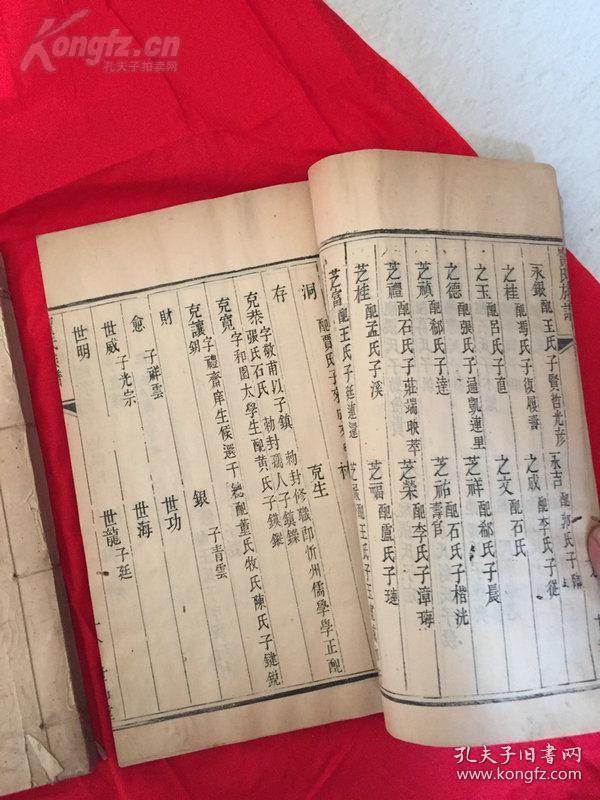 Kongfz.cn
孔夫子拍卖网
氏族譜
永銀 配王氏子賢哲光彦 永吉 配郭氏子
之桂 配馮氏子復履壽 之成 配李氏子從
之玉 配呂氏子直 之文 配石氏
之德 配張氏子通凱連里 芝祥 配郗氏子晨
芝禎 配郗氏子達 芝祐 壽官 配石氏子楷洸
芝禮 配石氏子莊瑞映萃 芝榮 配李氏子漳
芝桂 配孟氏子溪 芝福 配盧氏子璉
芝富 配王氏子廷連還
配賈氏子
洞 克生
存 字敬甫以子鎮 勅封修職郎沂州儒學學正配
張氏石氏 勅封孺人子鎮鑅
克恭 字和圃太學生配黄氏子鍈鑅
克寬 字禮齋庠生候選千總配董氏牧氏陳氏子鍵銳
克讓 銀 子青雲
財 子祥雲 世功
愈 世海
世威 子光宗 世龍 子廷
世明
孔夫子旧书网
www.kongfz.com